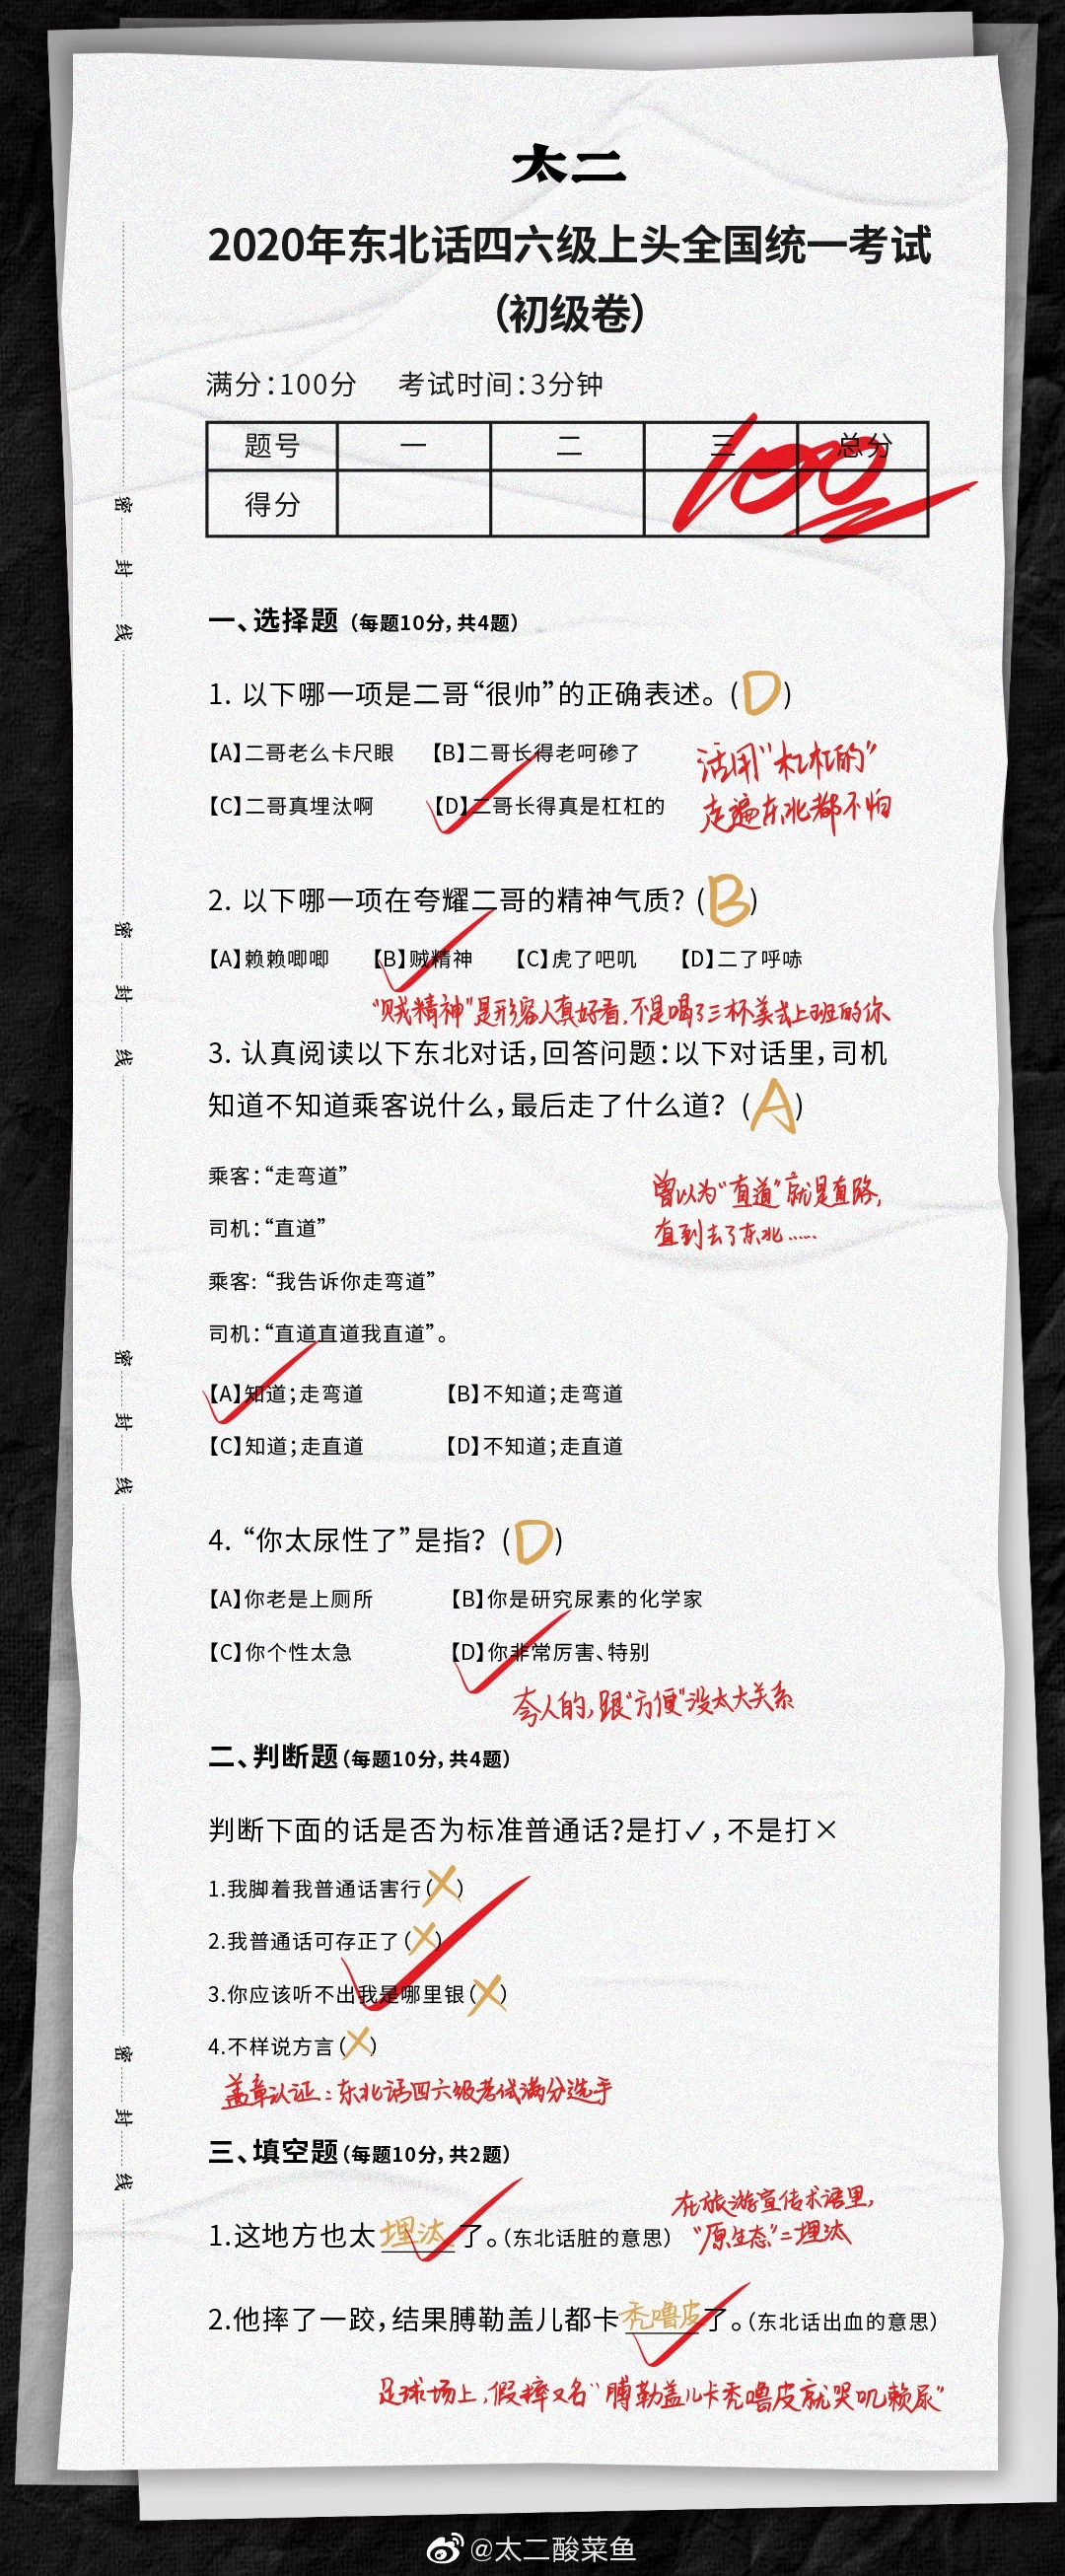 太二
2020年东北话四六级上头全国统一考试
（初级卷）
满分：100分 考试时间：3分钟
题号 一 二 三 总分
得分
100
一、选择题（每题10分，共4题）
1. 以下哪一项是二哥“很帅”的正确表述。(D)
【A】二哥老么卡尺眼 【B】二哥长得老呵碜了
【C】二哥真埋汰啊 【D】二哥长得真是杠杠的
活用“杠杠的”
走遍东北都不怕
2. 以下哪一项在夸耀二哥的精神气质？(B)
【A】赖赖唧唧 【B】贼精神 【C】虎了吧叽 【D】二了呼哧
“贼精神”是形容人真好看，不是喝了三杯美式上班的你
3. 认真阅读以下东北对话，回答问题：以下对话里，司机
知道不知道乘客说什么，最后走了什么道？(A)
乘客：“走弯道”
司机：“直道”
乘客：“我告诉你走弯道”
司机：“直道直道我直道”。
曾以为“直道”就是直路，
直到去了东北……
【A】知道；走弯道 【B】不知道；走弯道
【C】知道；走直道 【D】不知道；走直道
4. “你太尿性了”是指？(D)
【A】你老是上厕所 【B】你是研究尿素的化学家
【C】你个性太急 【D】你非常厉害、特别
夸人的，跟“方便”没太大关系
二、判断题（每题10分，共4题）
判断下面的话是否为标准普通话？是打✓，不是打×
1.我脚着我普通话害行(×)
2.我普通话可存正了(×)
3.你应该听不出我是哪里银(×)
4.不样说方言(×)
盖章认证：东北话四六级考试满分选手
三、填空题（每题10分，共2题）
1.这地方也太埋汰了。（东北话脏的意思）
在旅游宣传术语里，
“原生态”=埋汰
2.他摔了一跤，结果膊勒盖儿都卡秃噜皮了。（东北话出血的意思）
足球场上，假摔又名“膊勒盖儿卡秃噜皮就哭叽赖尿”
密封线
密封线
密封线
密封线
@太二酸菜鱼